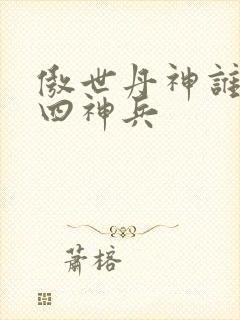 傲世丹神誰
四神兵
蕭榕